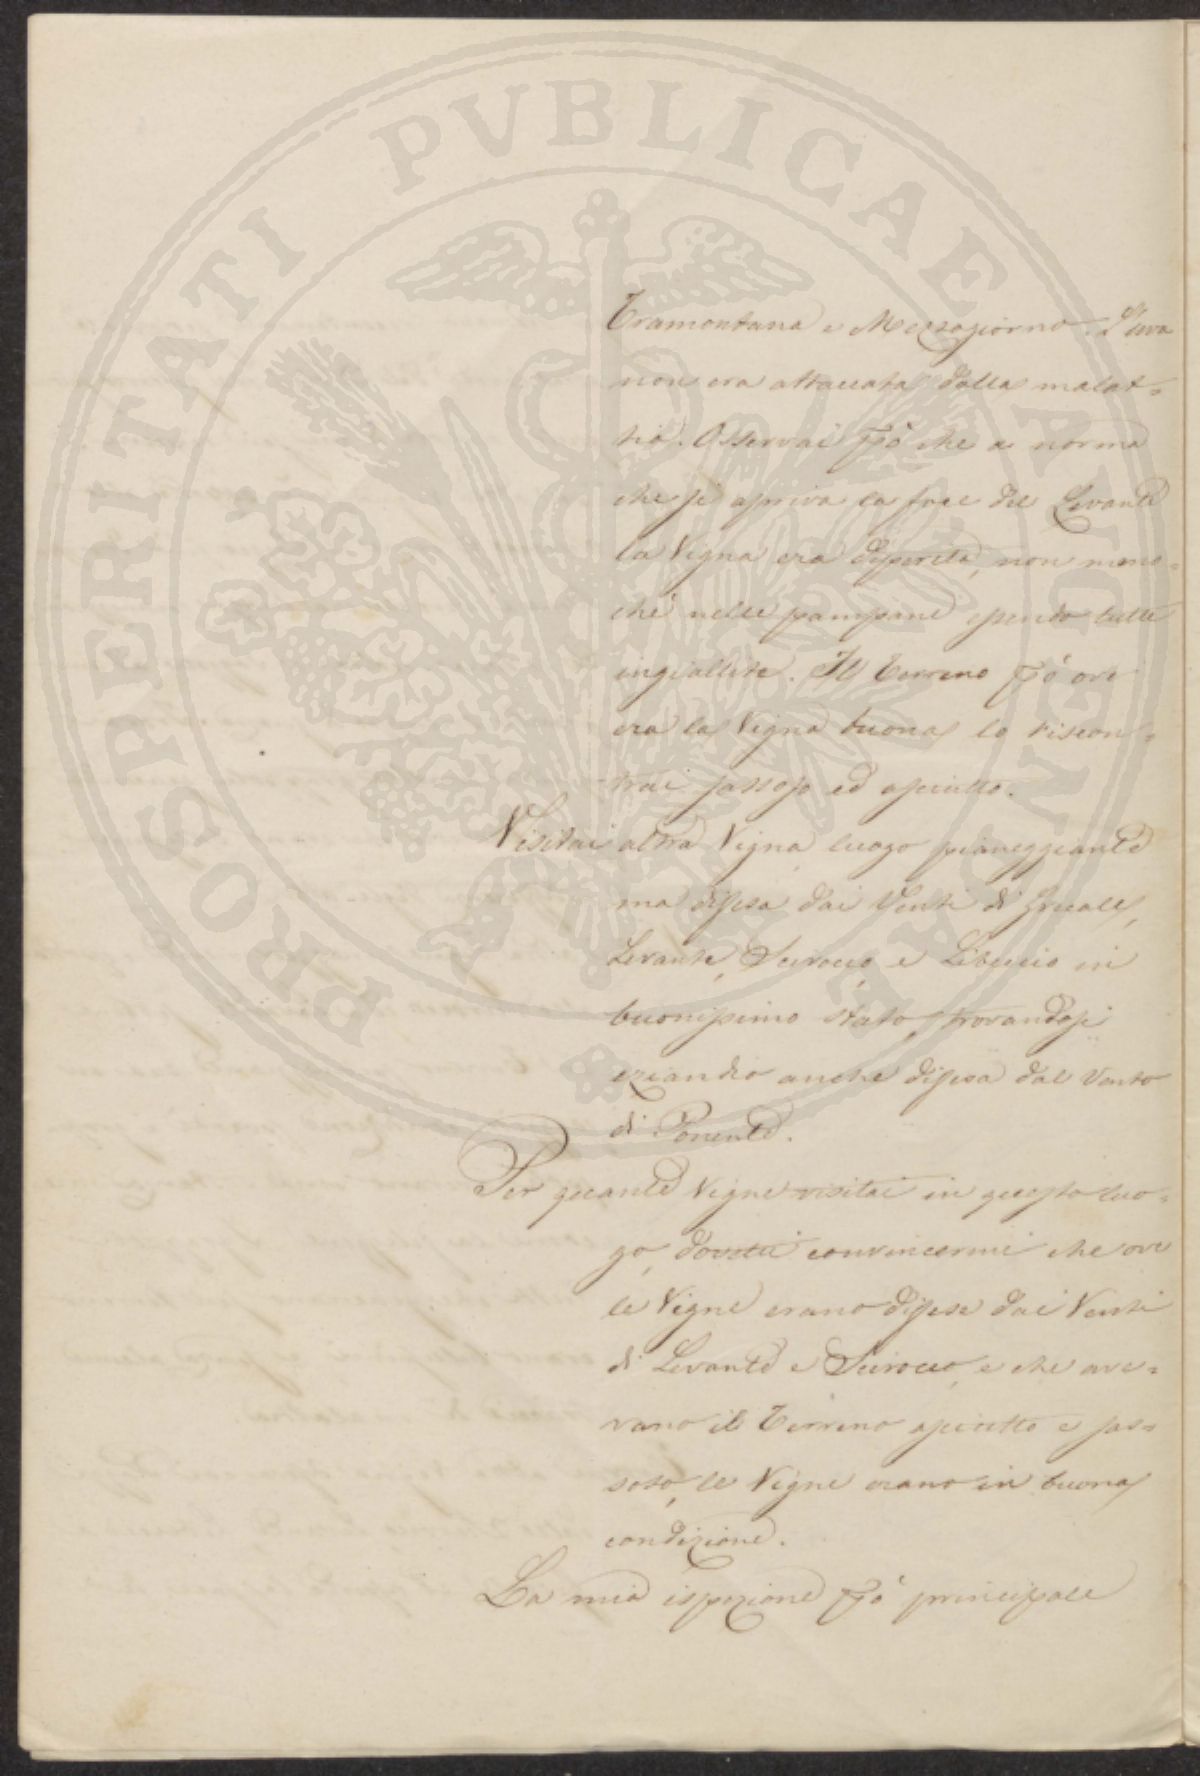 PROSPERITATI PVBLICAE AVGENDAE
Tramontana e Mezzogiorno. L'uva
non era attaccata dalla malat=
tia. Osservai ppò che a norma
che si apriva la foce del Levante
la Vigna era deperita, non meno=
chè nelle pampane essendo tutte
ingiallite. Il Terreno ppò ove
era la Vigna buona lo riscon=
trai sassoso ed asciutto.
Visitai altra Vigna, luogo pianeggiante
ma difesa dai Venti di Grecale,
Levante, Scirocco, e Libeccio in
buonissimo stato, trovandosi
eziandio anche difesa dal Vento
di Ponente.
Per quante Vigne visitai in questo luo=
go, dovetti convincermi che ove
le Vigne erano difese dai Venti
di Levante e Scirocco, e che ave=
vano il Terreno asciutto e sas=
soso, le Vigne erano in buona
condizione.
La mia ispezione ppò principale